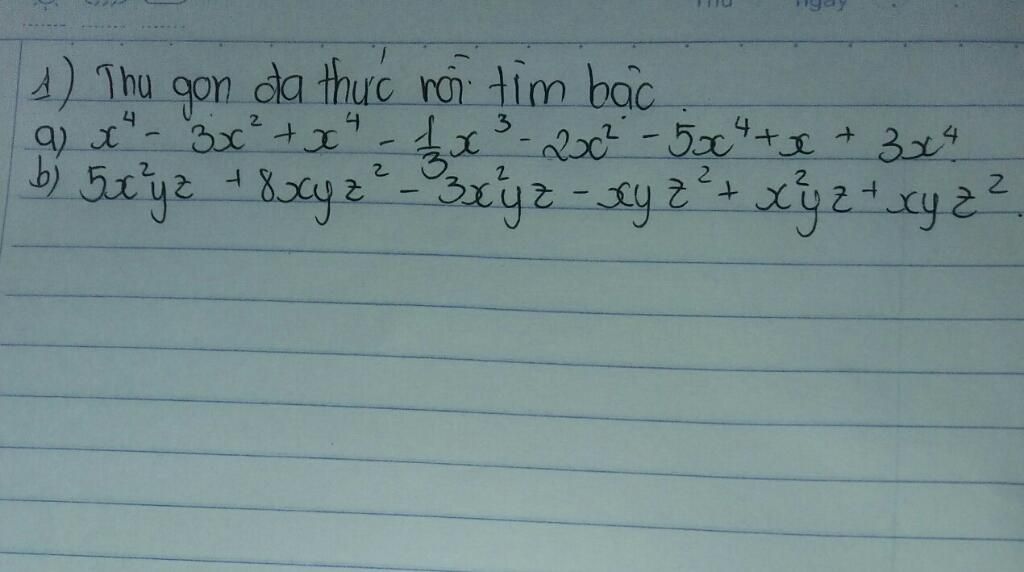 Thu ngày
1) Thu gọn đa thức rồi tìm bậc.
a) x⁴ - 3x² + x⁴ - 1/3 x³ - 2x² - 5x⁴ + x + 3x⁴.
b) 5x²yz + 8xyz² - 3x²yz - xyz² + x²yz + xyz².